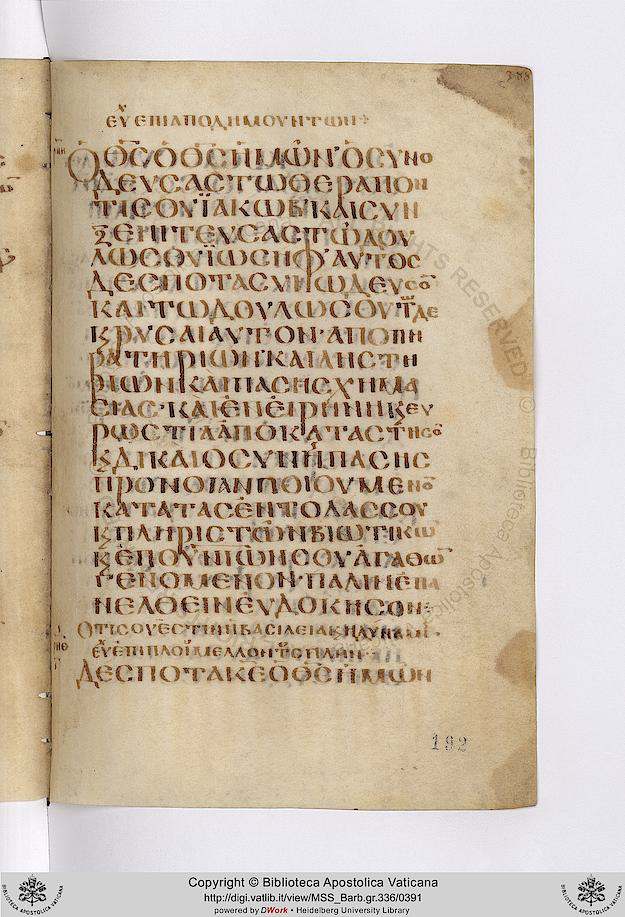 ΕΥ ΕΠΙ ΑΠΟΔΗΜΟΥΝΤΩΝ
Ο ΘΣ Ο ΘΣ ΗΜΩΝ Ο ΣΥΝΟ
ΔΕΥΣΑΣ ΤΩ ΘΕΡΑΠΟΝ
ΤΙ ΣΟΥ ΪΑΚΩΒ ΚΑΙ ΣΥΝ
ΞΕΝΙΤΕΥΣΑΣ ΤΩ ΔΟΥ
ΛΩ ΣΟΥ ΪΩΣΗΦ ΑΥΤΟΣ
ΔΕΣΠΟΤΑ ΣΥΝΩΔΕΥΣΟ
ΚΑΙ ΤΩ ΔΟΥΛΩ ΣΟΥ ΤΩΔΕ
Κ ΡΥΣΑΙ ΑΥΤΟΝ ΑΠΟ ΠΗ
ΡΑΤΗΡΙΩΝ ΚΑΙ ΛΗΣΤΗ
ΡΙΩΝ ΚΑΙ ΠΑΣΗΣ ΧΗΜΑ
ΣΙΑΣ ΚΑΙ ΕΝ ΕΙΡΗΝΗ Κ ΕΥ
ΡΩΣΤΙΑ ΑΠΟΚΑΤΑΣΤΗΣΟ
Κ ΔΙΚΑΙΟΣΥΝΗ ΠΑΣΗΣ
ΠΡΟΝΟΙΑΝ ΠΟΙΟΥΜΕΝΟ
ΚΑΤΑ ΤΑΣ ΕΝΤΟΛΑΣ ΣΟΥ
Κ ΠΛΗΡΙΣ ΤΩΝ ΒΙΩΤΙΚΩ
Κ ΕΠΟΥΝΙΩΝ ΣΟΥ ΑΓΑΘΩ
ΓΕΝΟΜΕΝΟΝ ΠΑΛΙΝ ΕΠΑ
ΝΕΛΘΕΙΝ ΕΥΔΟΚΗΣΟΝ
ΟΤΙ ΣΟΥ ΕΣΤΙΝ Η ΒΑΣΙΛΕΙΑ Κ Η ΔΥΝΑΜΙ
ΕΥ ΕΠΙ ΠΛΟΙ ΜΕΛΛΟΝΤΟΣ ΠΛΕΙΝ
ΔΕΣΠΟΤΑ ΚΕ Ο ΘΣ ΗΜΩΝ
192
RIGHTS RESERVED
© Biblioteca Apostolica
Copyright © Biblioteca Apostolica Vaticana
http://digi.vatlib.it/view/MSS_Barb.gr.336/0391
powered by DWork • Heidelberg University Library
BIBLIOTECA APOSTOLICA VATICANA
BIBLIOTECA APOSTOLICA VATICANA